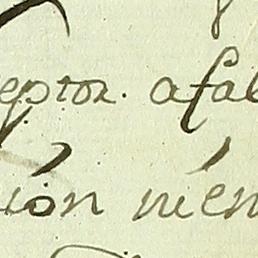 eptor. afal
ión nien